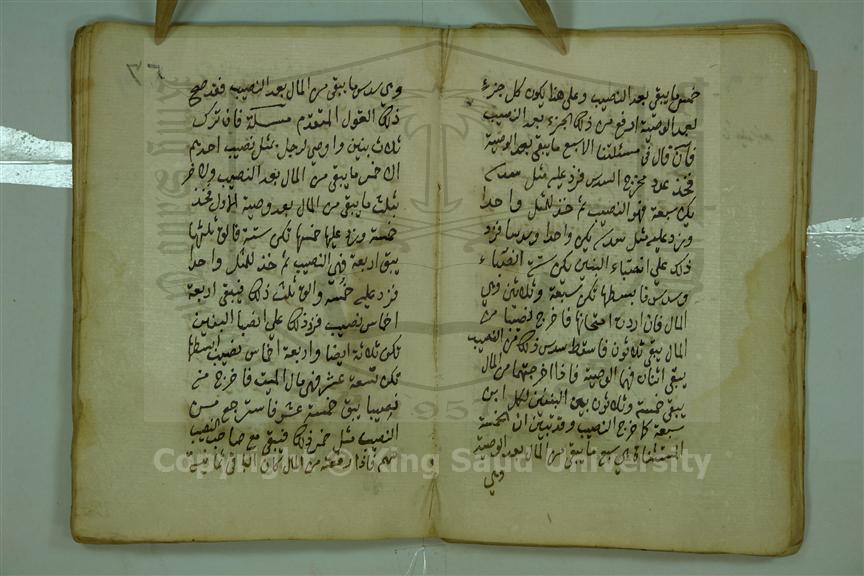 خمس ما يبقى بعد النصيب وعلى هذا يكون كل جزء
بعد الوصية ارفع من ذلك الجزء بعد النصيب
فان قال في مسئلتنا الا سبع ما يبقى بعد الوصية
فخذ عدد مخرج السدس فزد عليه مثل سدسه
يكن سبعة فهو النصيب ثم خذ للمثل واحدا
وزد عليه مثل سدسه يكن واحدا وسدسا فزد
ذلك على انصباء البنين يكن ستة انصباء
وسدس فابسطها تكن سبعة وثلاثين وهي
المال فان اردت امتحانها فاخرج نصيبا من
المال يبقى ثلاثون فاسقط سدس ذلك من النصيب
يبقى اثنان فهما الوصية فاذا اخرجتهما من المال
يبقى خمسة وثلاثون بين البنين لكل ابن
سبعة كما خرج النصيب وقد تبين ان الخمسة
المستثناة هي سبع ما يبقى من المال بعد الوصية
وهي
٣٦
وهي سدس ما يبقى من المال بعد النصيب فقد صح
ذلك القول المتقدم مسئلة فان ترك
ثلاث بنين واوصى لرجل بمثل نصيب احدهم
الا خمس ما يبقى من المال بعد النصيب ولاخر
بثلث ما يبقى من المال بعد وصية الاول فخذ
خمسة وزد عليها خمسها تكن ستة فالق ثلثها
يبقى اربعة فهي النصيب ثم خذ للمثل واحدا
فزد عليه خمسه والق ثلث ذلك فيبقى اربعة
اخماس نصيب فزد ذلك على انصبا البنين
تكن ثلاثة ايضا واربعة اخماس نصيب ابسطها
تكن تسعة عشر فهي مال الميت فاخرج منه
نصيبا يبقى خمسة عشر فاسترجع من
النصيب مثل خمس ذلك فيبقى مع صاحب النصيب
سهم فاذا رفعته من المال كان الباقي ثمانية
Copyright © King Saud University
1957